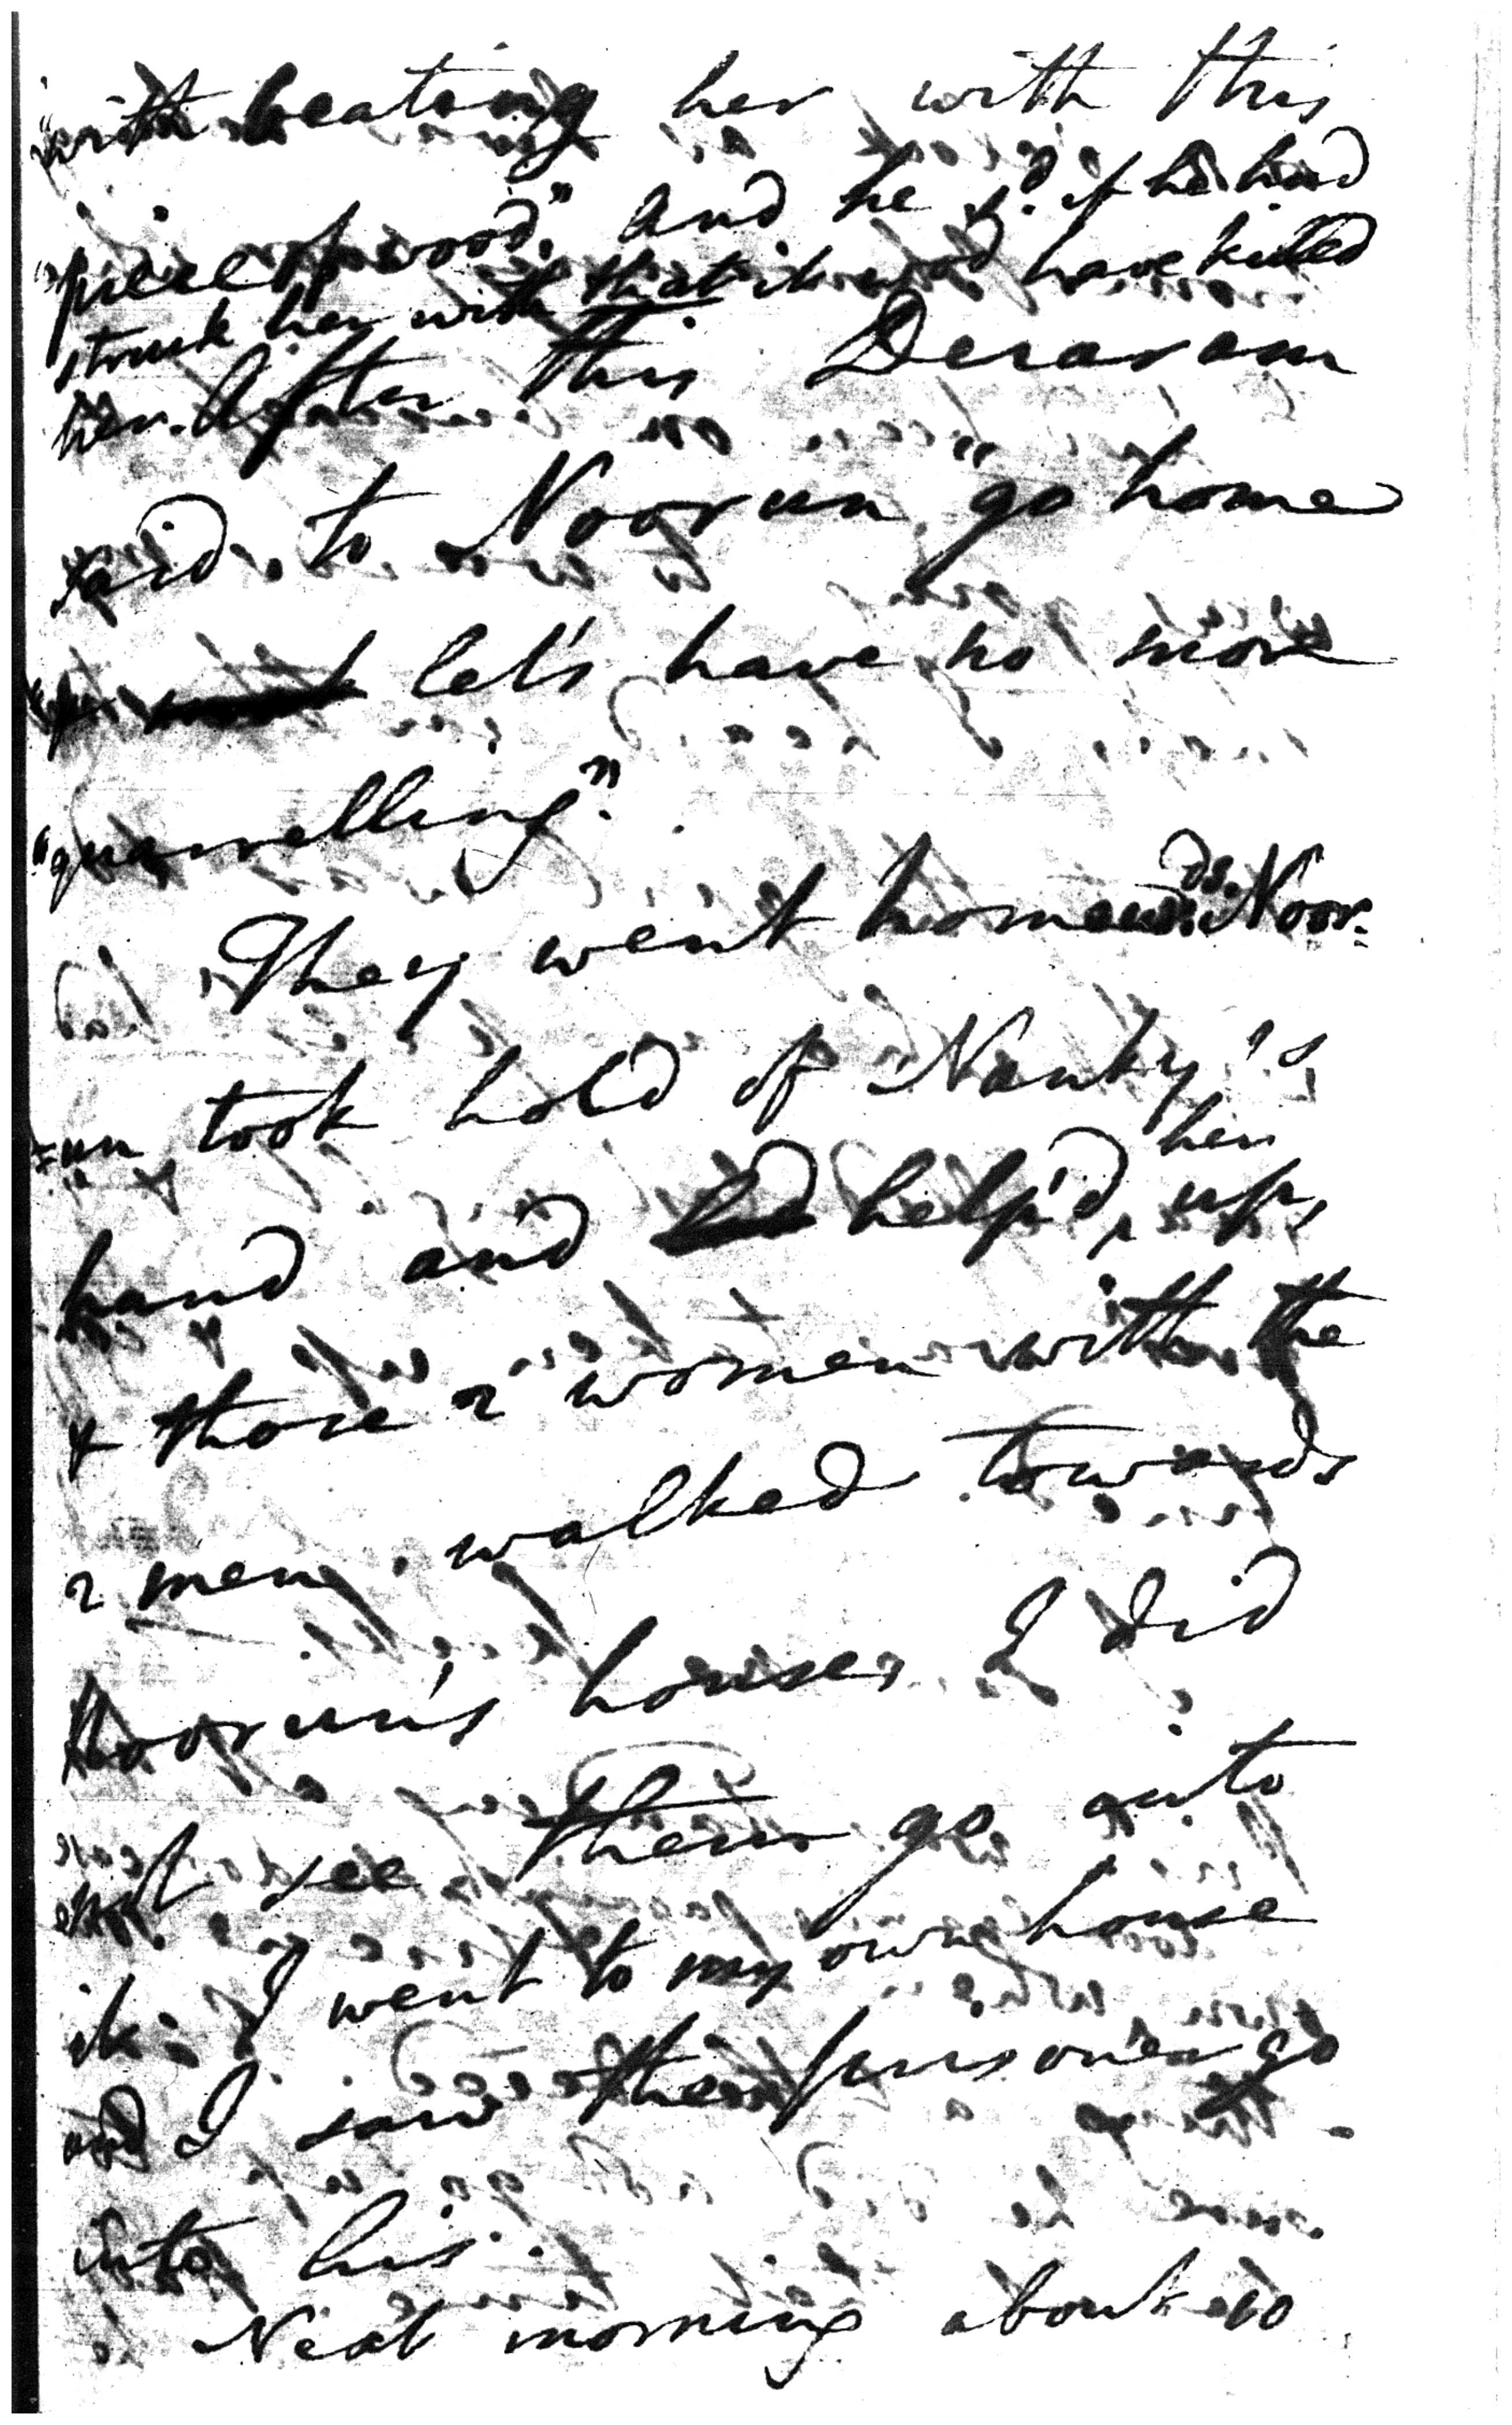 "with beating her with this
"piece of wood," and he sd. if he had
struck her with that it wod have killed
her. After this Derasam
said to Noorun, "go home
let's have no more
"quarrelling."
They went homewds. Noor=
=un took hold of Nanby's
hand and help'd her up,
& those 2 women with the
2 men walked towards
Noorun's house, I did
not see them go into
it. I went to my own house
and I saw the prisoner go
into his.
Next morning about 10